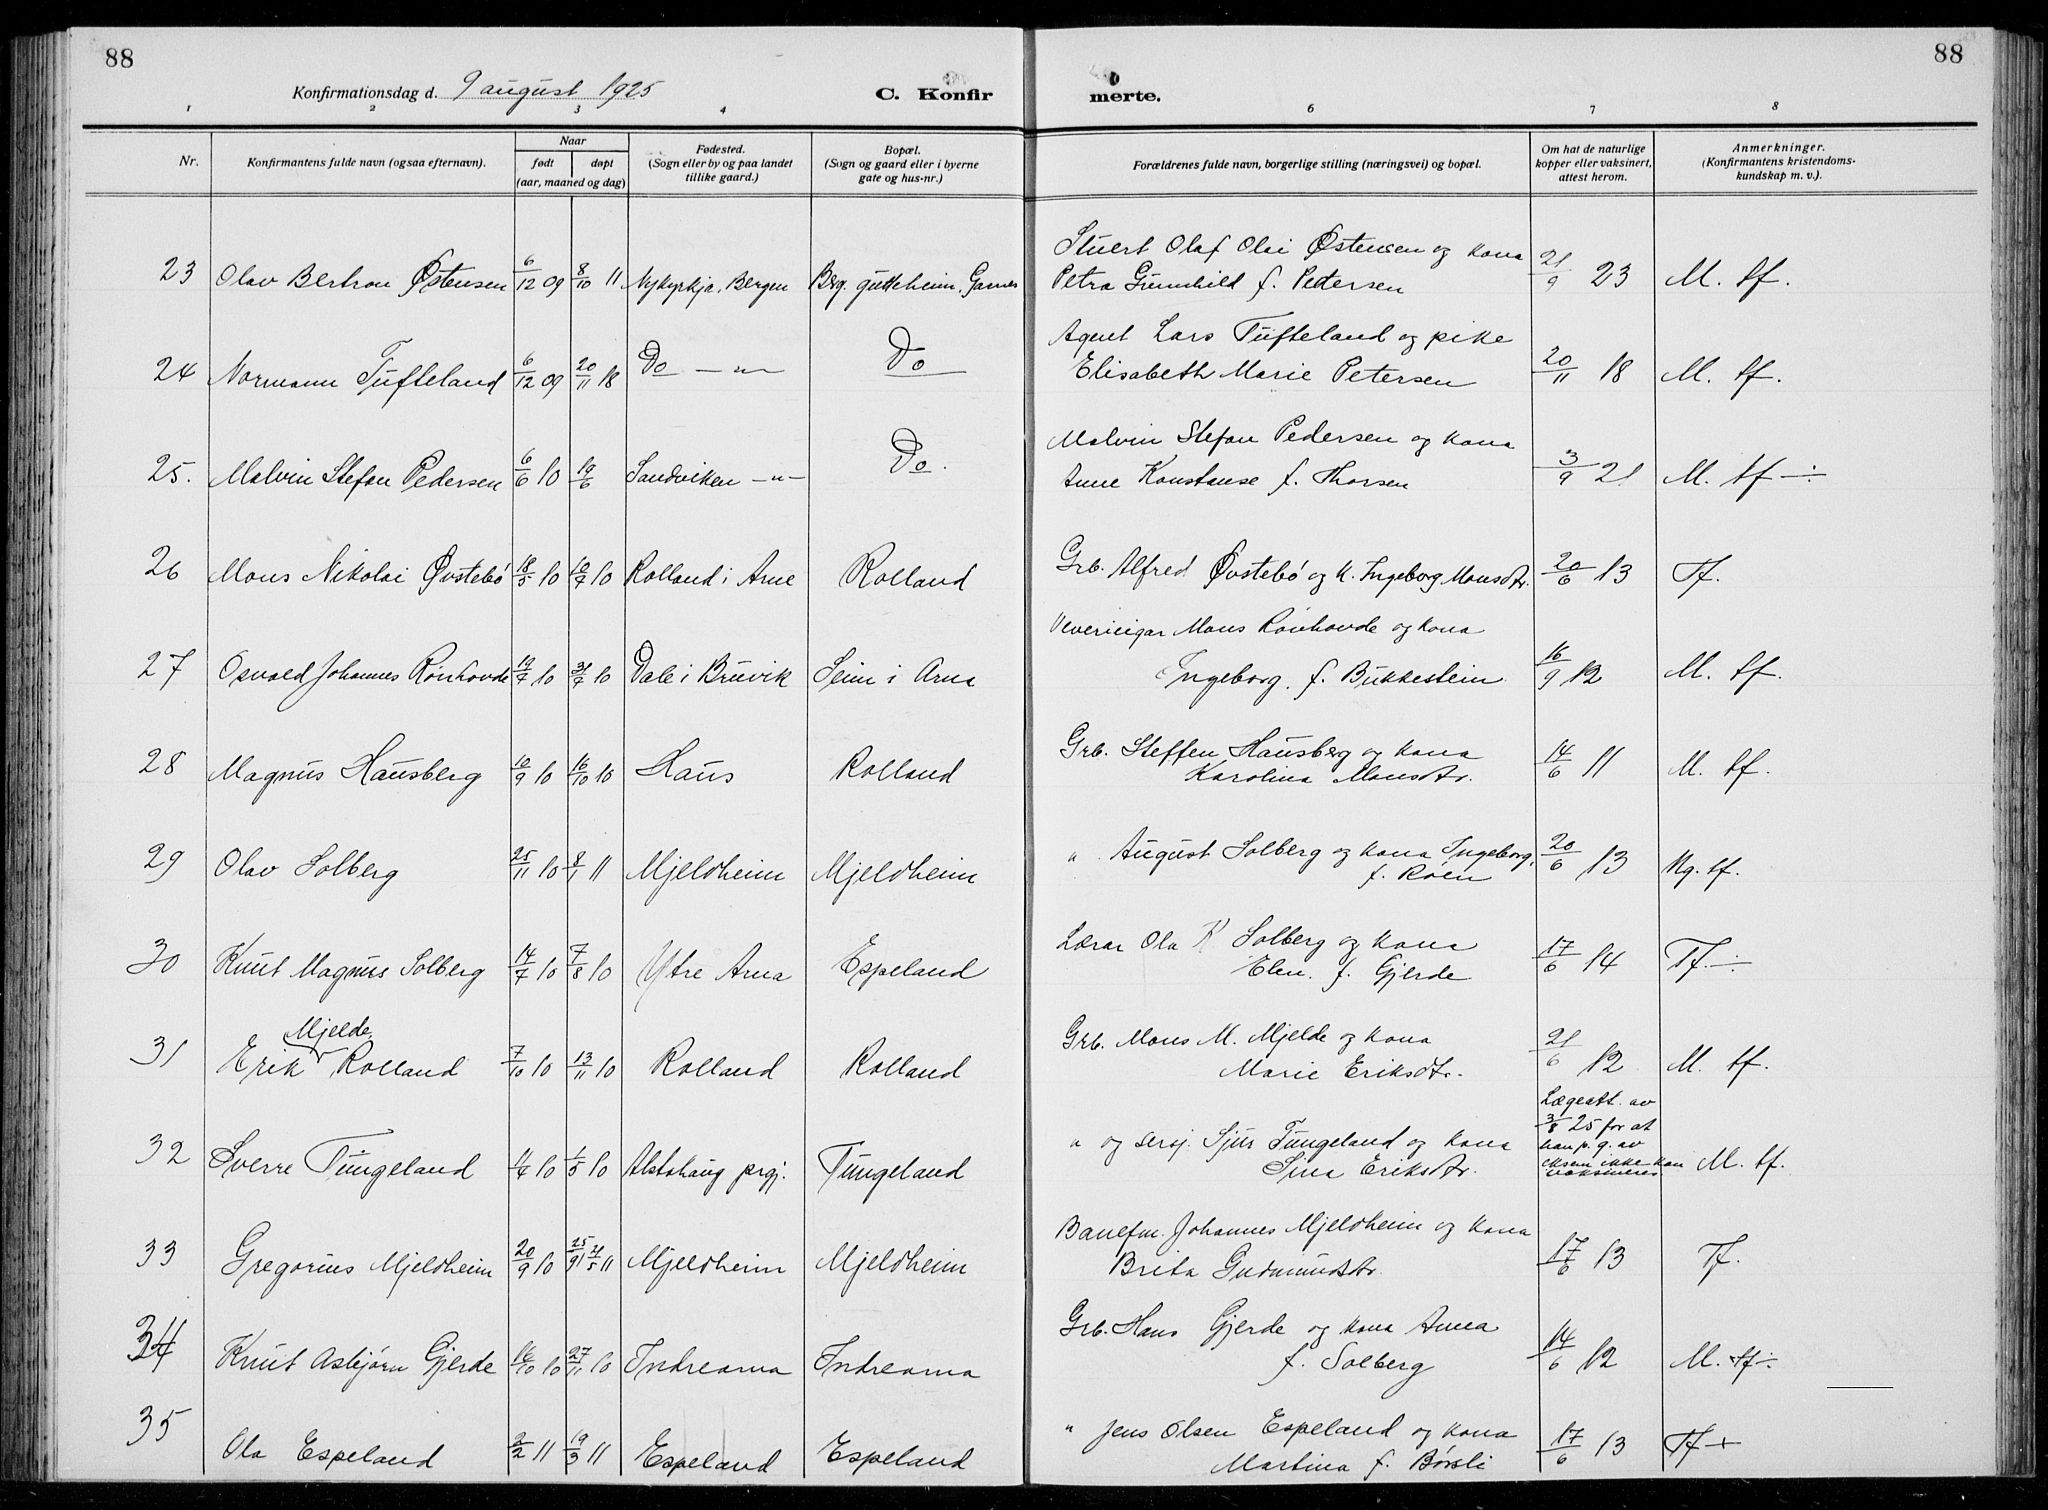 88
88
Konfirmationsdag d. 9 august 1925
C. Konfir
merte.
1 2 3 4 6 7 8
Nr.
Konfirmantens fulde navn (ogsaa efternavn).
Naar
født døpt
(aar, maaned og dag)
Fødested.
(Sogn eller by og paa landet
tillike gaard.)
Bopæl.
(Sogn og gaard eller i byerne
gate og hus-nr.)
Forældrenes fulde navn, borgerlige stilling (næringsvei) og bopæl.
Om hat de naturlige
kopper eller vaksinert,
attest herom.
Anmerkninger.
(Konfirmantens kristendoms-
kundskap m. v.).
Stuert Olaf Olai Østensen og kona
23 Olav Bertron Østensen 6/12 09 8/10 11 Nykyrkja, Bergen Brg. gutteheim, Garnes Petra Gunnhild f. Pedersen 21/9 23 M. tf.
Agent Lars Tufteland og pike
24 Normann Tufteland 6/12 09 20/11 18 Do —„— Do Elisabeth Marie Petersen 20/11 18 M. tf.
Malvin Stefan Pedersen og kona
25. Malvin Stefan Pedersen 6/6 10 19/6 Sandviken —„— Do. Anne Konstanse f. Thorsen 3/9 21 M. tf ÷
26 Mons Nikolai Øvstebö 18/5 10 10/7 10 Rolland i Arne Rolland Grb. Alfred Øvstebö og k. Ingeborg Monsdtr. 20/6 13 Tf.
Veverieigar Mons Rönhovde og kona
27 Osvald Johannes Rönhovde 19/7 10 31/7 10 Dale i Bruvik Seim i Arna Ingeborg. f. Bukkestein 16/9 12 M. tf.
Grb. Steffen Hausberg og kona
28 Magnus Hausberg 10/9 10 16/10 10 Haus Rolland Karolina Monsdtr. 14/6 11 M. tf.
" August Solberg og kona Ingeborg,
29 Olav Solberg 25/11 10 8/1 11 Mjeldheim Mjeldheim f. Röen 20/6 13 Mg. tf.
Lærar Ola K Solberg og kona
30 Knut Magnus Solberg 14/7 10 7/8 10 Ytre Arna Espeland Elen. f. Gjerde 17/6 14 Tf. ÷
Mjelde
Grb. Mons M. Mjelde og kona
31 Erik Rolland 7/10 10 13/11 10 Rolland Rolland Marie Eriksdtr. 21/6 12 M. tf.
Lægeatt. av
3/8 25 for at
han p. g. av
eksem ikke kan
vaksineres
" og sersj. Sjur Tungeland og kona
32 Sverre Tungeland 11/4 10 1/5 10 Alstahaug prgj. Tungeland Sina Eriksdtr. M. tf.
Banefm. Johannes Mjeldheim og kona
33 Gregorius Mjeldheim 20/9 10 25/9 21/5 11 Mjeldheim Mjeldheim Brita Gudmundsdtr. 17/6 13 Tf.
Grb. Hans Gjerde og kona Anna
34 Knut Asbjørn Gjerde 16/10 10 27/11 10 Indrearna Indrearna f. Solberg 14/6 12 M. tf ÷.
" Jens Olsen Espeland og kona
35 Ola Espeland 2/2 11 19/3 11 Espeland Espeland Martina f. Börsli 17/6 13 Tf +